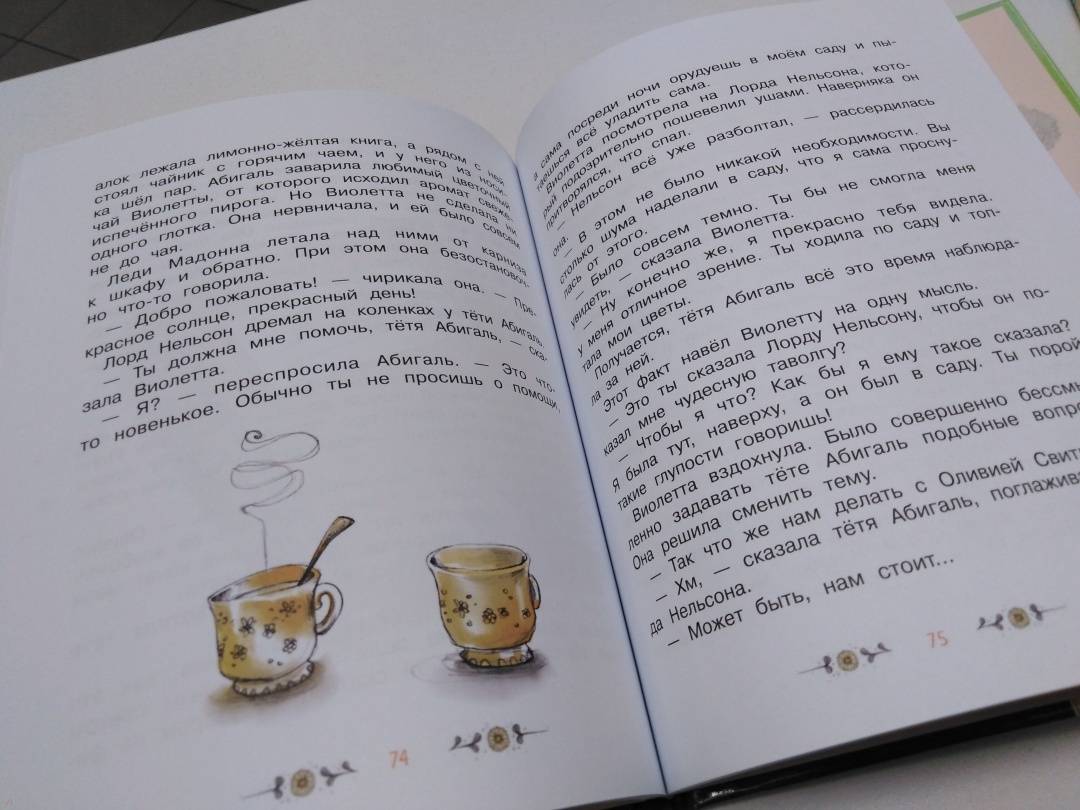 алок лежала лимонно-жёлтая книга, а рядом с ней
стоял чайник с горячим чаем, и у него из носи-
ка шёл пар. Абигаль заварила любимый цветочный
чай Виолетты, от которого исходил аромат свеже-
испечённого пирога. Но Виолетта не сделала ни
одного глотка. Она нервничала, и ей было совсем
не до чая.
Леди Мадонна летала над ними от карниза
к шкафу и обратно. При этом она безостановоч-
но что-то говорила.
— Добро пожаловать! — чирикала она. — Пре-
красное солнце, прекрасный день!
Лорд Нельсон дремал на коленках у тёти Абигаль.
— Ты должна мне помочь, тётя Абигаль, — ска-
зала Виолетта.
— Я? — переспросила Абигаль. — Это что-
то новенькое. Обычно ты не просишь о помощи,
74
а сама посреди ночи орудуешь в моём саду и пы-
таешься всё уладить сама.
Виолетта посмотрела на Лорда Нельсона, кото-
рый подозрительно пошевелил ушами. Наверняка он
притворялся, что спал.
— Нельсон всё уже разболтал, — рассердилась
она.
— В этом не было никакой необходимости. Вы
столько шума наделали в саду, что я сама просну-
лась от этого.
— Было совсем темно. Ты бы не смогла меня
увидеть, — сказала Виолетта.
— Ну конечно же, я прекрасно тебя видела.
У меня отличное зрение. Ты ходила по саду и топ-
тала мои цветы.
Получается, тётя Абигаль всё это время наблюда-
ла за ней.
Этот факт навёл Виолетту на одну мысль.
— Это ты сказала Лорду Нельсону, чтобы он по-
казал мне чудесную таволгу?
— Чтобы я что? Как бы я ему такое сказала?
Я была тут, наверху, а он был в саду. Ты порой
такие глупости говоришь!
Виолетта вздохнула. Было совершенно бессмы
ленно задавать тёте Абигаль подобные вопро
Она решила сменить тему.
— Так что же нам делать с Оливией Свит
— Хм, — сказала тётя Абигаль, поглажива
да Нельсона.
— Может быть, нам стоит...
75